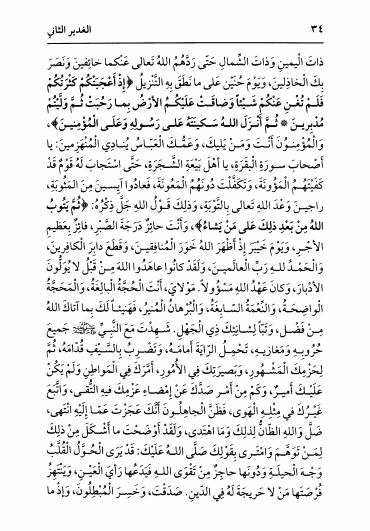 ٣٤ الغدير الثاني
ذاتَ اليَمينِ وَذاتَ الشِّمالِ حَتّى رَدَّهُمُ اللهُ تَعالى عَنْكُما خائِفينَ وَنَصَرَ
بِكَ الخاذِلينَ، وَيَوْمَ حُنَيْنٍ عَلى ما نَطَقَ بِهِ التَّنْزيلُ ﴿إِذْ أَعْجَبَتْكُمْ كَثْرَتُكُمْ
فَلَمْ تُغْنِ عَنْكُمْ شَيْئاً وَضاقَتْ عَلَيْكُمُ الأَرْضُ بِما رَحُبَتْ ثُمَّ وَلَّيْتُمْ
مُدْبِرينَ * ثُمَّ أَنْزَلَ اللهُ سَكينَتَهُ عَلى رَسُولِهِ وَعَلَى الْمُؤْمِنينَ﴾،
وَالْمُؤْمِنُونَ أَنْتَ وَمَنْ يَليكَ، وَعَمُّكَ العَبّاسُ يُنادِي المُنْهَزِمينَ: يا
أَصْحابَ سورَةِ البَقَرَةِ، يا أَهْلَ بَيْعَةِ الشَّجَرَةِ، حَتَّى اسْتَجابَ لَهُ قَوْمٌ قَدْ
كَفَيْتَهُمُ المَؤُونَةَ، وَتَكَفَّلْتَ دُونَهُمُ المَعُونَةَ، فَعادُوا آيِسينَ مِنَ المَثُوبَةِ،
راجينَ وَعْدَ اللهِ تَعالى بِالتَّوْبَةِ، وَذلِكَ قَوْلُ اللهِ جَلَّ ذِكْرُهُ: ﴿ثُمَّ يَتُوبُ
اللهُ مِنْ بَعْدِ ذلِكَ عَلى مَنْ يَشاءُ﴾، وَأَنْتَ حائِزٌ دَرَجَةَ الصَّبْرِ، فائِزٌ بِعَظيمِ
الأَجْرِ، وَيَوْمَ خَيْبَرَ إِذْ أَظْهَرَ اللهُ خَوَرَ المُنافِقينَ، وَقَطَعَ دابِرَ الكافِرينَ،
وَالْحَمْدُ للهِ رَبِّ العالَمينَ، وَلَقَدْ كانُوا عاهَدُوا اللهَ مِنْ قَبْلُ لا يُوَلُّونَ
الأَدْبارَ، وَكانَ عَهْدُ اللهِ مَسْؤُولاً. مَوْلايَ، أَنْتَ الحُجَّةُ البالِغَةُ، وَالمَحَجَّةُ
الواضِحَةُ، وَالنِّعْمَةُ السّابِغَةُ، وَالبُرْهانُ المُنيرُ، فَهَنيئاً لَكَ بِما آتاكَ اللهُ
مِنْ فَضْلٍ، وَتَبّاً لِشانِئِكَ ذِي الجَهْلِ. شَهِدْتَ مَعَ النَّبِيِّ ﷺ جَميعَ
حُرُوبِهِ وَمَغازيهِ، تَحْمِلُ الرّايَةَ أَمامَهُ، وَتَضْرِبُ بِالسَّيْفِ قُدّامَهُ، ثُمَّ
لِحَزْمِكَ المَشْهُورِ، وَبَصيرَتِكَ فِي الأُمُورِ، أَمَّرَكَ فِي المَواطِنِ وَلَمْ يَكُنْ
عَلَيْكَ أَميرٌ، وَكَمْ مِنْ أَمْرٍ صَدَّكَ عَنْ إِمْضاءِ عَزْمِكَ فيهِ التُّقى، وَاتَّبَعَ
غَيْرُكَ في مِثْلِهِ الهَوى، فَظَنَّ الجاهِلُونَ أَنَّكَ عَجَزْتَ عَمّا إِلَيْهِ انْتَهى،
ضَلَّ وَاللهِ الظّانُّ لِذلِكَ وَمَا اهْتَدى، وَلَقَدْ أَوْضَحْتَ ما أَشْكَلَ مِنْ ذلِكَ
لِمَنْ تَوَهَّمَ وَامْتَرى بِقَوْلِكَ صَلَّى اللهُ عَلَيْكَ: قَدْ يَرَى الحُوَّلُ القُلَّبُ
وَجْهَ الحيلَةِ وَدُونَها حاجِزٌ مِنْ تَقْوَى اللهِ فَيَدَعُها رَأْيَ العَيْنِ، وَيَنْتَهِزُ
فُرْصَتَها مَنْ لا حَريجَةَ لَهُ فِي الدّينِ. صَدَقْتَ، وَخَسِرَ المُبْطِلُونَ، وَإِذْ ما